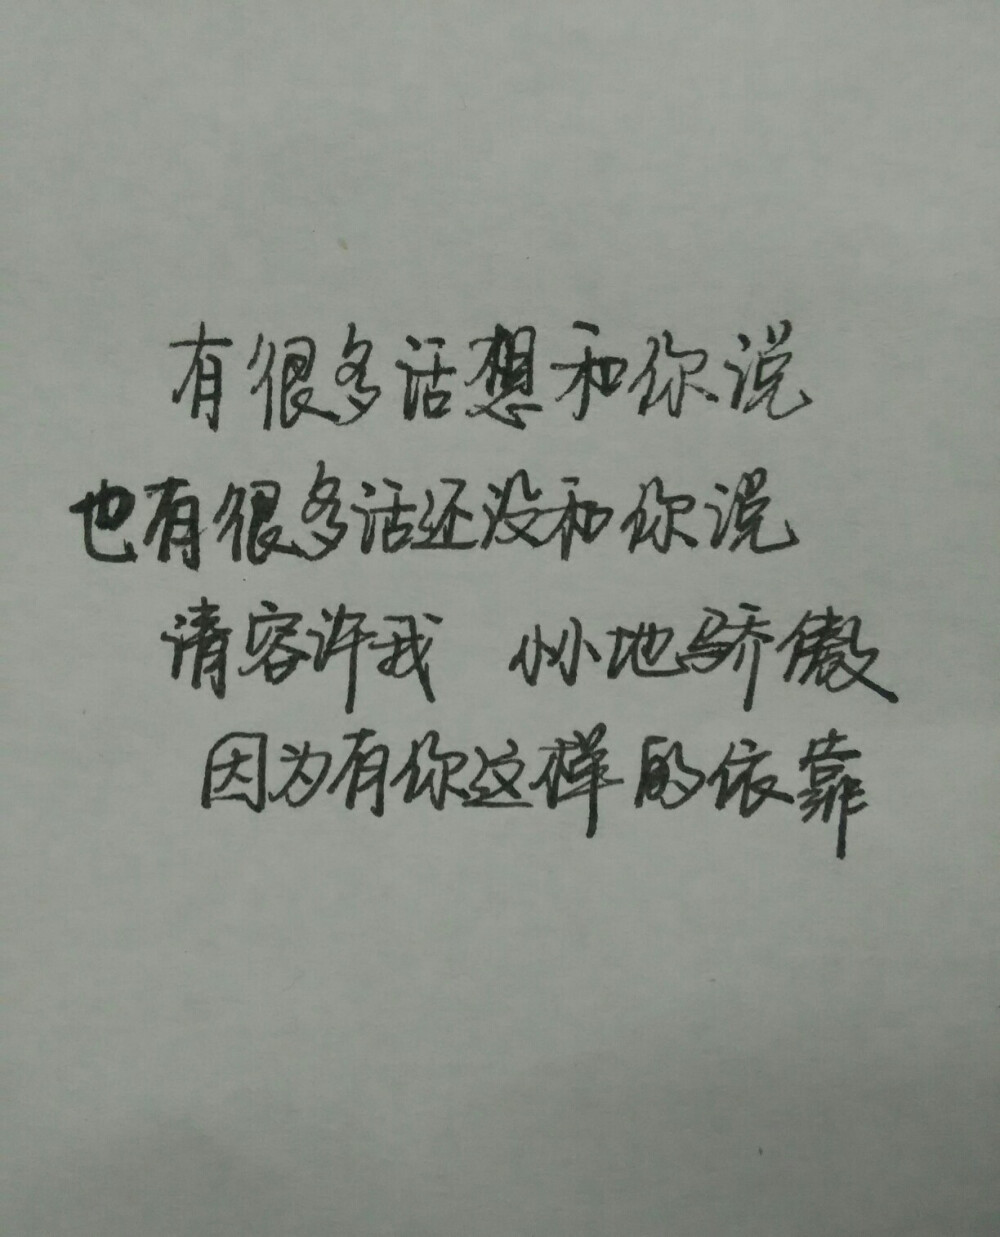 有很多话想和你说
也有很多话还没和你说
请容许我 小小地骄傲
因为有你这样的依靠